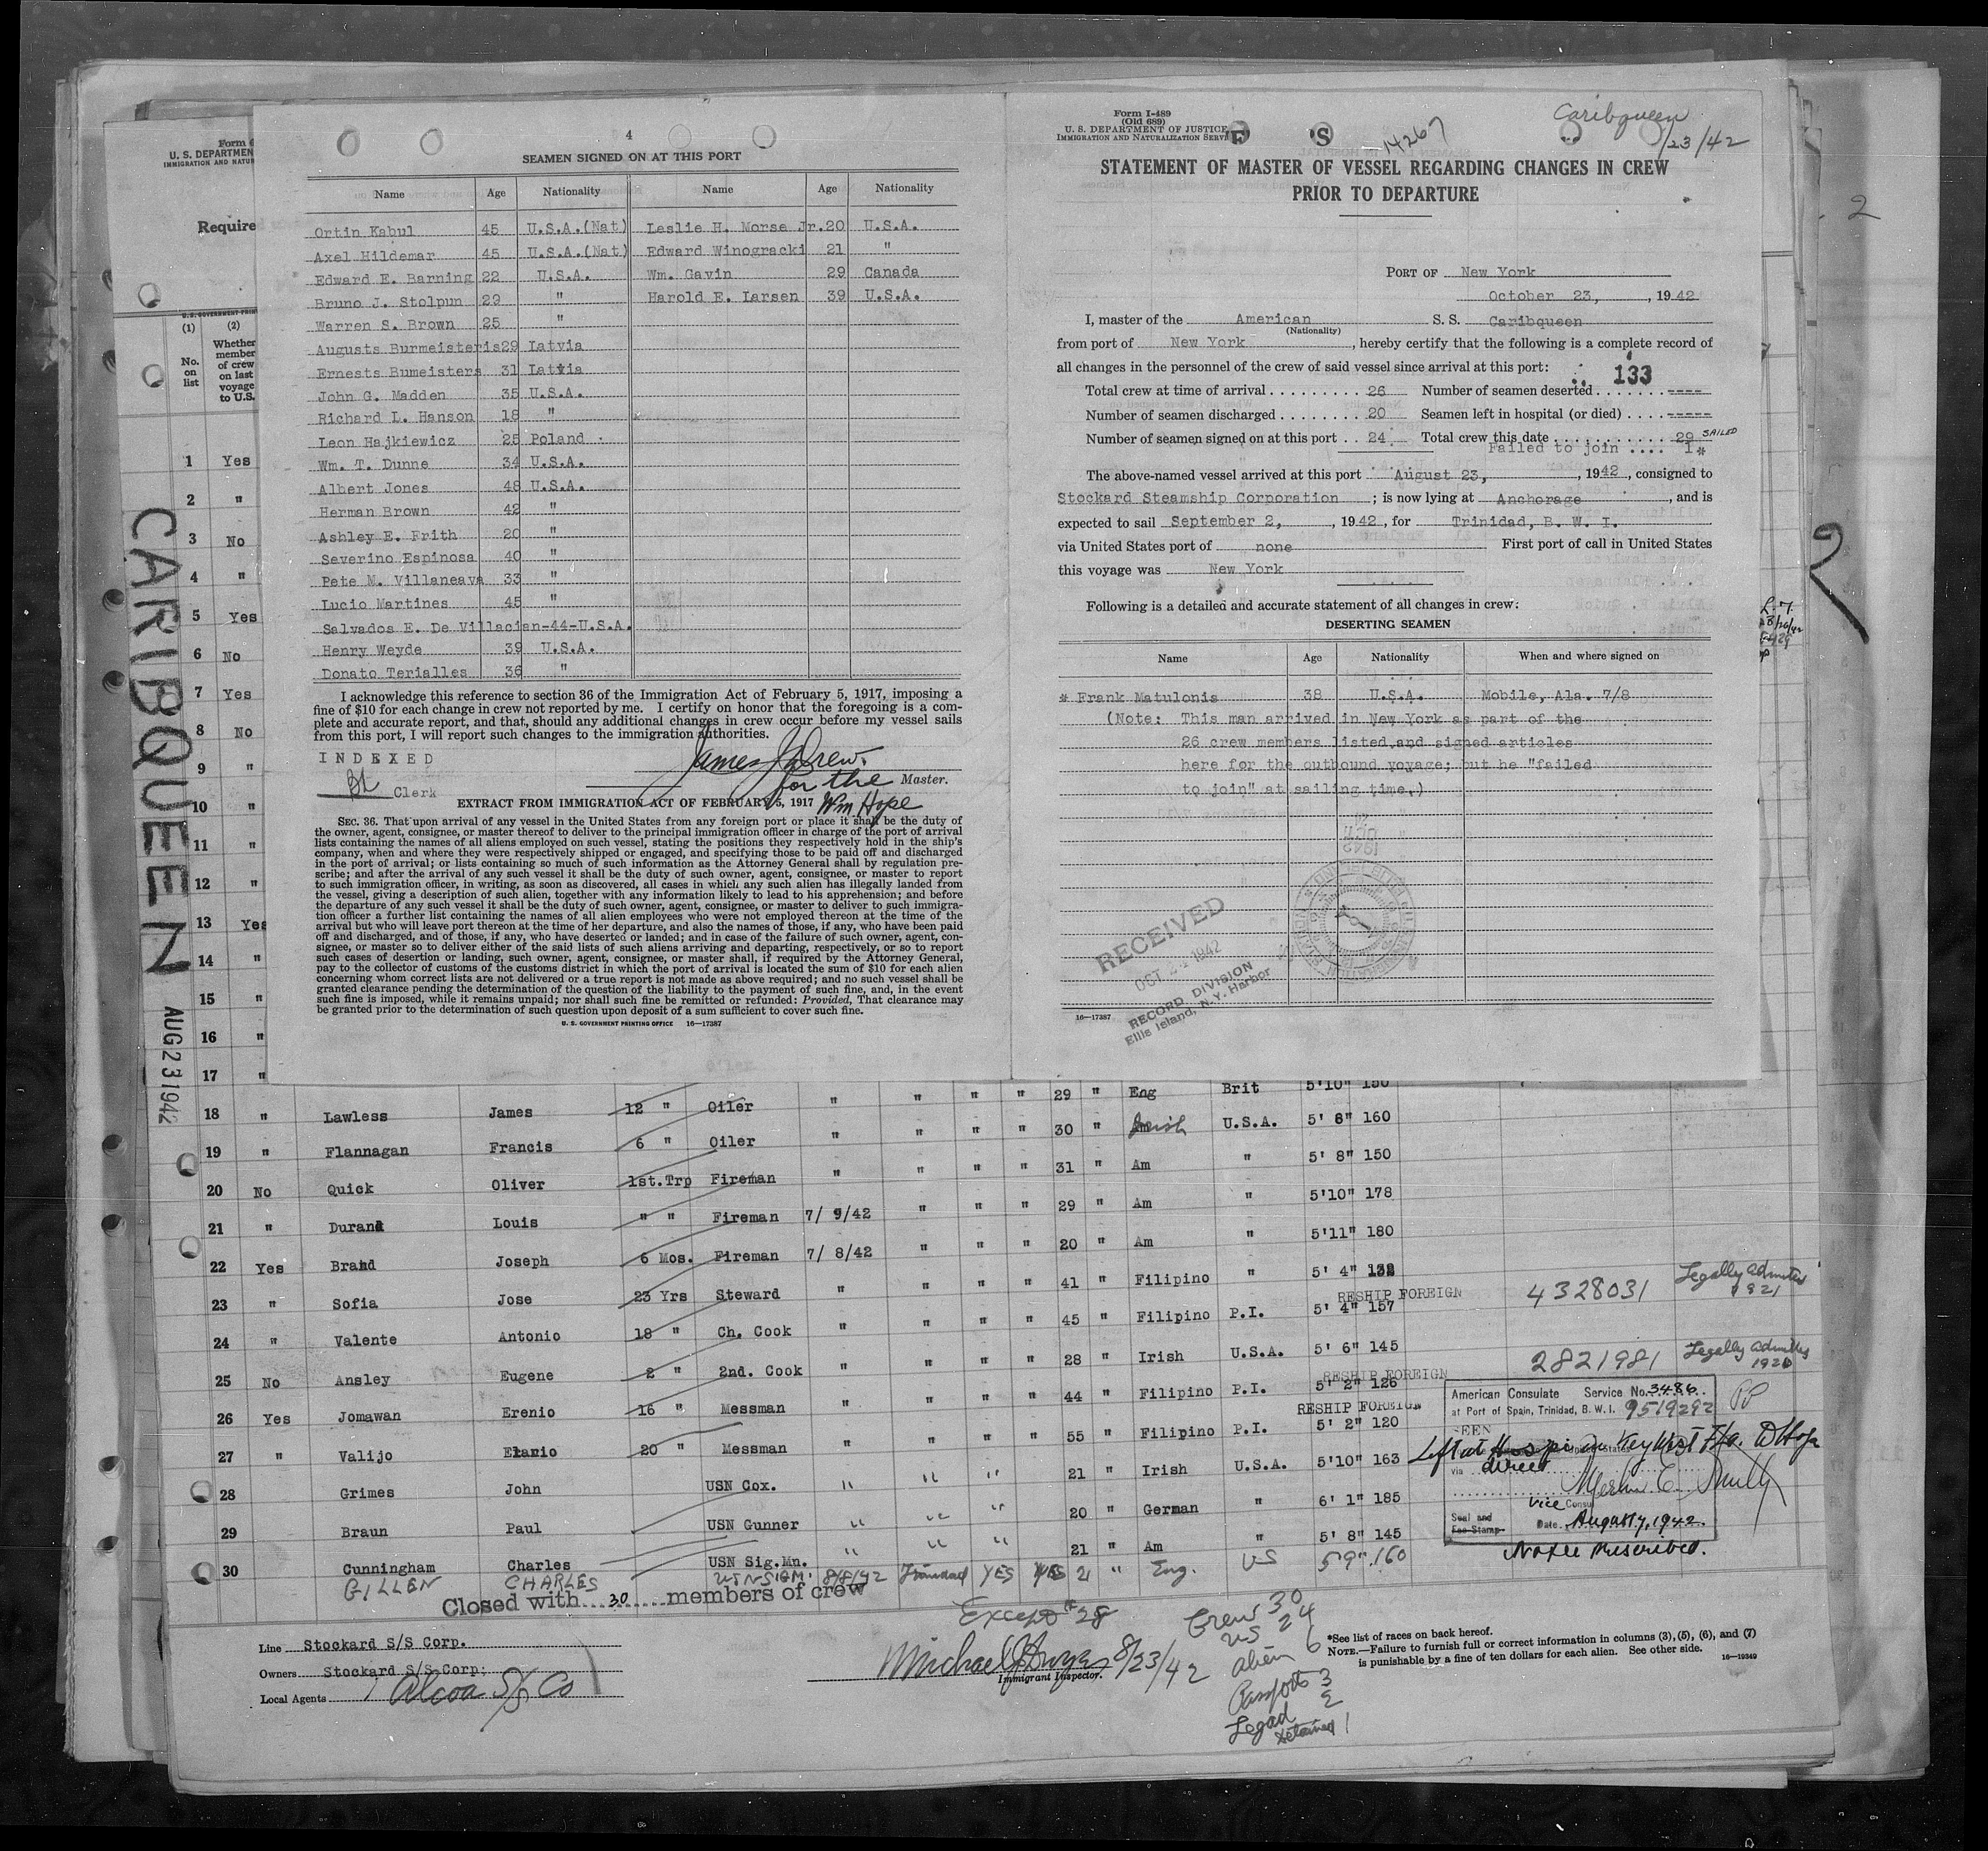 Form
U. S. DEPARTMEN
IMMIGRATION AND NATUR
Require
U.S. GOVERNMENT PRIN
(1)
(2)
No. on list
Whether member of crew on last voyage to U.S.
1 Yes
2 "
3 No
4 "
5 Yes
6 No
7 Yes
8 No
9 "
10 "
11 "
12 "
13 Yes
14 "
15 "
16 "
17 "
CARIBQUEEN AUG 23 1942
4
SEAMEN SIGNED ON AT THIS PORT
Name Age Nationality Name Age Nationality
Ortin Kabul 45 U.S.A.(Nat) Leslie H. Morse Jr. 20 U.S.A.
Axel Hildemar 45 U.S.A.(Nat) Edward Winogracki 21 "
Edward E. Barning 22 U.S.A. Wm. Gavin 29 Canada
Bruno J. Stolpun 29 " Harold E. Larsen 39 U.S.A.
Warren S. Brown 25 "
Augusts Burmeisteris 29 Latvia
Ernests Bumeisters 31 Latvia
John G. Madden 35 U.S.A.
Richard L. Hanson 18 "
Leon Hajkiewicz 25 Poland
Wm. T. Dunne 34 U.S.A.
Albert Jones 48 U.S.A.
Herman Brown 42 "
Ashley E. Frith 20 "
Severino Espinosa 40 "
Pete M. Villaneava 33 "
Lucio Martines 45 "
Salvados E. De Villacian-44-U.S.A.
Henry Weyde 39 U.S.A.
Donato Terialles 36 "
I acknowledge this reference to section 36 of the Immigration Act of February 5, 1917, imposing a
fine of $10 for each change in crew not reported by me. I certify on honor that the foregoing is a com-
plete and accurate report, and that, should any additional changes in crew occur before my vessel sails
from this port, I will report such changes to the immigration authorities.
INDEXED
Clerk
James J Drew
for the Master.
Wm Hope
EXTRACT FROM IMMIGRATION ACT OF FEBRUARY 5, 1917
SEC. 36. That upon arrival of any vessel in the United States from any foreign port or place it shall be the duty of
the owner, agent, consignee, or master thereof to deliver to the principal immigration officer in charge of the port of arrival
lists containing the names of all aliens employed on such vessel, stating the positions they respectively hold in the ship's
company, when and where they were respectively shipped or engaged, and specifying those to be paid off and discharged
in the port of arrival; or lists containing so much of such information as the Attorney General shall by regulation pre-
scribe; and after the arrival of any such vessel it shall be the duty of such owner, agent, consignee, or master to report
to such immigration officer, in writing, as soon as discovered, all cases in which any such alien has illegally landed from
the vessel, giving a description of such alien, together with any information likely to lead to his apprehension; and before
the departure of any such vessel it shall be the duty of such owner, agent, consignee, or master to deliver to such immigra-
tion officer a further list containing the names of all alien employees who were not employed thereon at the time of the
arrival but who will leave port thereon at the time of her departure, and also the names of those, if any, who have been paid
off and discharged, and of those, if any, who have deserted or landed; and in case of the failure of such owner, agent, con-
signee, or master so to deliver either of the said lists of such aliens arriving and departing, respectively, or so to report
such cases of desertion or landing, such owner, agent, consignee, or master shall, if required by the Attorney General,
pay to the collector of customs of the customs district in which the port of arrival is located the sum of $10 for each alien
concerning whom correct lists are not delivered or a true report is not made as above required; and no such vessel shall be
granted clearance pending the determination of the question of the liability to the payment of such fine, and, in the event
such fine is imposed, while it remains unpaid; nor shall such fine be remitted or refunded: Provided, That clearance may
be granted prior to the determination of such question upon deposit of a sum sufficient to cover such fine.
U. S. GOVERNMENT PRINTING OFFICE 16—17387
Form I-489
(Old 689)
U. S. DEPARTMENT OF JUSTICE
IMMIGRATION AND NATURALIZATION SERVICE
F S
14267
Caribqueen
/23/42
STATEMENT OF MASTER OF VESSEL REGARDING CHANGES IN CREW
PRIOR TO DEPARTURE
PORT OF New York
October 23, , 1942
I, master of the American S. S. Caribqueen
(Nationality)
from port of New York , hereby certify that the following is a complete record of
all changes in the personnel of the crew of said vessel since arrival at this port: 133
Total crew at time of arrival 26 Number of seamen deserted ----
Number of seamen discharged 20 Seamen left in hospital (or died) -----
Number of seamen signed on at this port 24 Total crew this date 29 SAILED
Failed to join .... 1*
The above-named vessel arrived at this port August 23, , 1942, consigned to
Stockard Steamship Corporation ; is now lying at Anchorage , and is
expected to sail September 2, , 1942, for Trinidad, B. W. I.
via United States port of none First port of call in United States
this voyage was New York
Following is a detailed and accurate statement of all changes in crew:
DESERTING SEAMEN
Name Age Nationality When and where signed on
* Frank Matulonis 38 U.S.A. Mobile, Ala. 7/8
(Note: This man arrived in New York as part of the
26 crew members listed and signed articles
here for the outbound voyage; but he "failed
to join" at sailing time.)
RECEIVED
OCT 1942
RECORD DIVISION
Ellis Island, N.Y. Harbor
16—17387
2
2
29 " Eng Brit 5'10" 150
18 " Lawless James 12 " Oiler " " " " 30 " Irish U.S.A. 5' 8" 160
19 " Flannagan Francis 6 " Oiler " " " " 31 " Am " 5' 8" 150
20 No Quick Oliver 1st.Trp Fireman " " " " 29 " Am " 5'10" 178
21 " Durand Louis " " Fireman 7/ 9/42 " " " 20 " Am " 5'11" 180
22 Yes Brand Joseph 6 Mos. Fireman 7/ 8/42 " " " 41 " Filipino " 5' 4" 132
23 " Sofia Jose 23 Yrs Steward " " " " 45 " Filipino P.I. 5' 4" 157 RESHIP FOREIGN 4328031 Legally admitted 1921
24 " Valente Antonio 18 " Ch. Cook " " " " 28 " Irish U.S.A. 5' 6" 145
25 No Ansley Eugene 2 " 2nd. Cook " " " " 44 " Filipino P.I. 5' 2" 126 RESHIP FOREIGN 2821981 Legally admitted 1926
26 Yes Jomawan Erenio 16 " Messman " " " " 55 " Filipino P.I. 5' 2" 120 RESHIP FOREIGN
27 " Valijo Elario 20 " Messman " " " " 21 " Irish U.S.A. 5'10" 163
28 Grimes John USN Cox. " " " 20 " German " 6' 1" 185
29 Braun Paul USN Gunner " " " 21 " Am " 5' 8" 145
30 Cunningham Charles USN Sig.Mn. " " "
GILLEN CHARLES 8/8/42 Trinidad YES YES 21 " Eng. US 5'9" 160
American Consulate Service No. 3486
at Port of Spain, Trinidad, B. W. I. 9519292 PP
SEEN
Left at Hospi in Key West Fla. W Hope
via direct
Vice Consul
Seal and
Fee Stamp
Date August 7, 1942.
No fee prescribed.
Closed with 30 members of crew
Except # 28
Line Stockard S/S Corp.
Owners Stockard S/S Corp;
Local Agents Alcoa S/S Co
Michael J Dwyer 8/23/42
Immigrant Inspector.
Crew 30
US 24
Alien 6
Passports 3
Legad 2
Detained 1
*See list of races on back hereof.
NOTE.—Failure to furnish full or correct information in columns (3), (5), (6), and (7)
is punishable by a fine of ten dollars for each alien. See other side.
16—19349